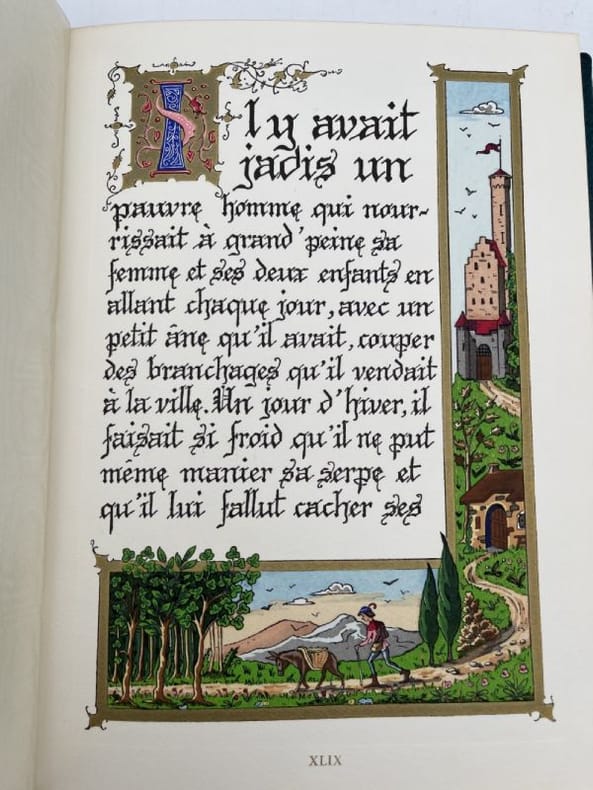 Il y avait
jadis un
pauvre homme qui nour-
rissait à grand'peine sa
femme et ses deux enfants en
allant chaque jour, avec un
petit âne qu'il avait, couper
des branchages qu'il vendait
à la ville. Un jour d'hiver, il
faisait si froid qu'il ne put
même manier sa serpe et
qu'il lui fallut cacher ses
XLIX